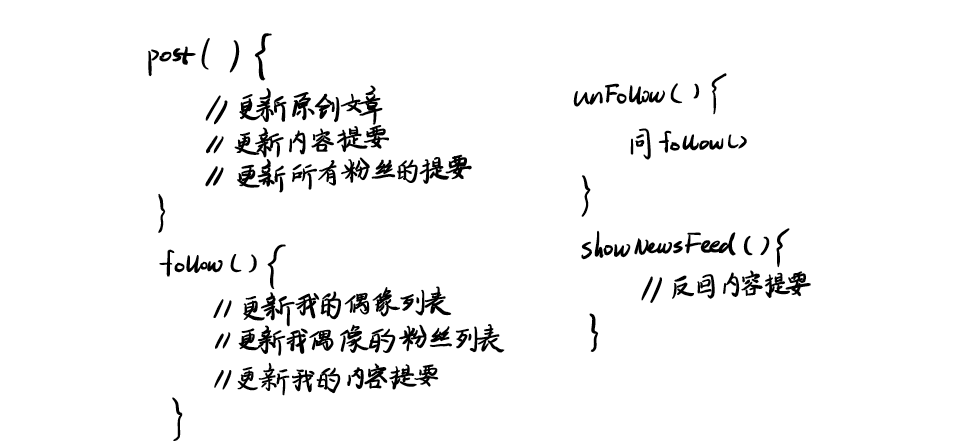 post( ) {
// 更新原创文章
// 更新内容提要
// 更新所有粉丝的提要
}
follow( ) {
// 更新我的偶像列表
// 更新我偶像的粉丝列表
// 更新我的内容提要
}
unFollow( ) {
同 follow()
}
showNewsFeed( ) {
// 反回内容提要
}